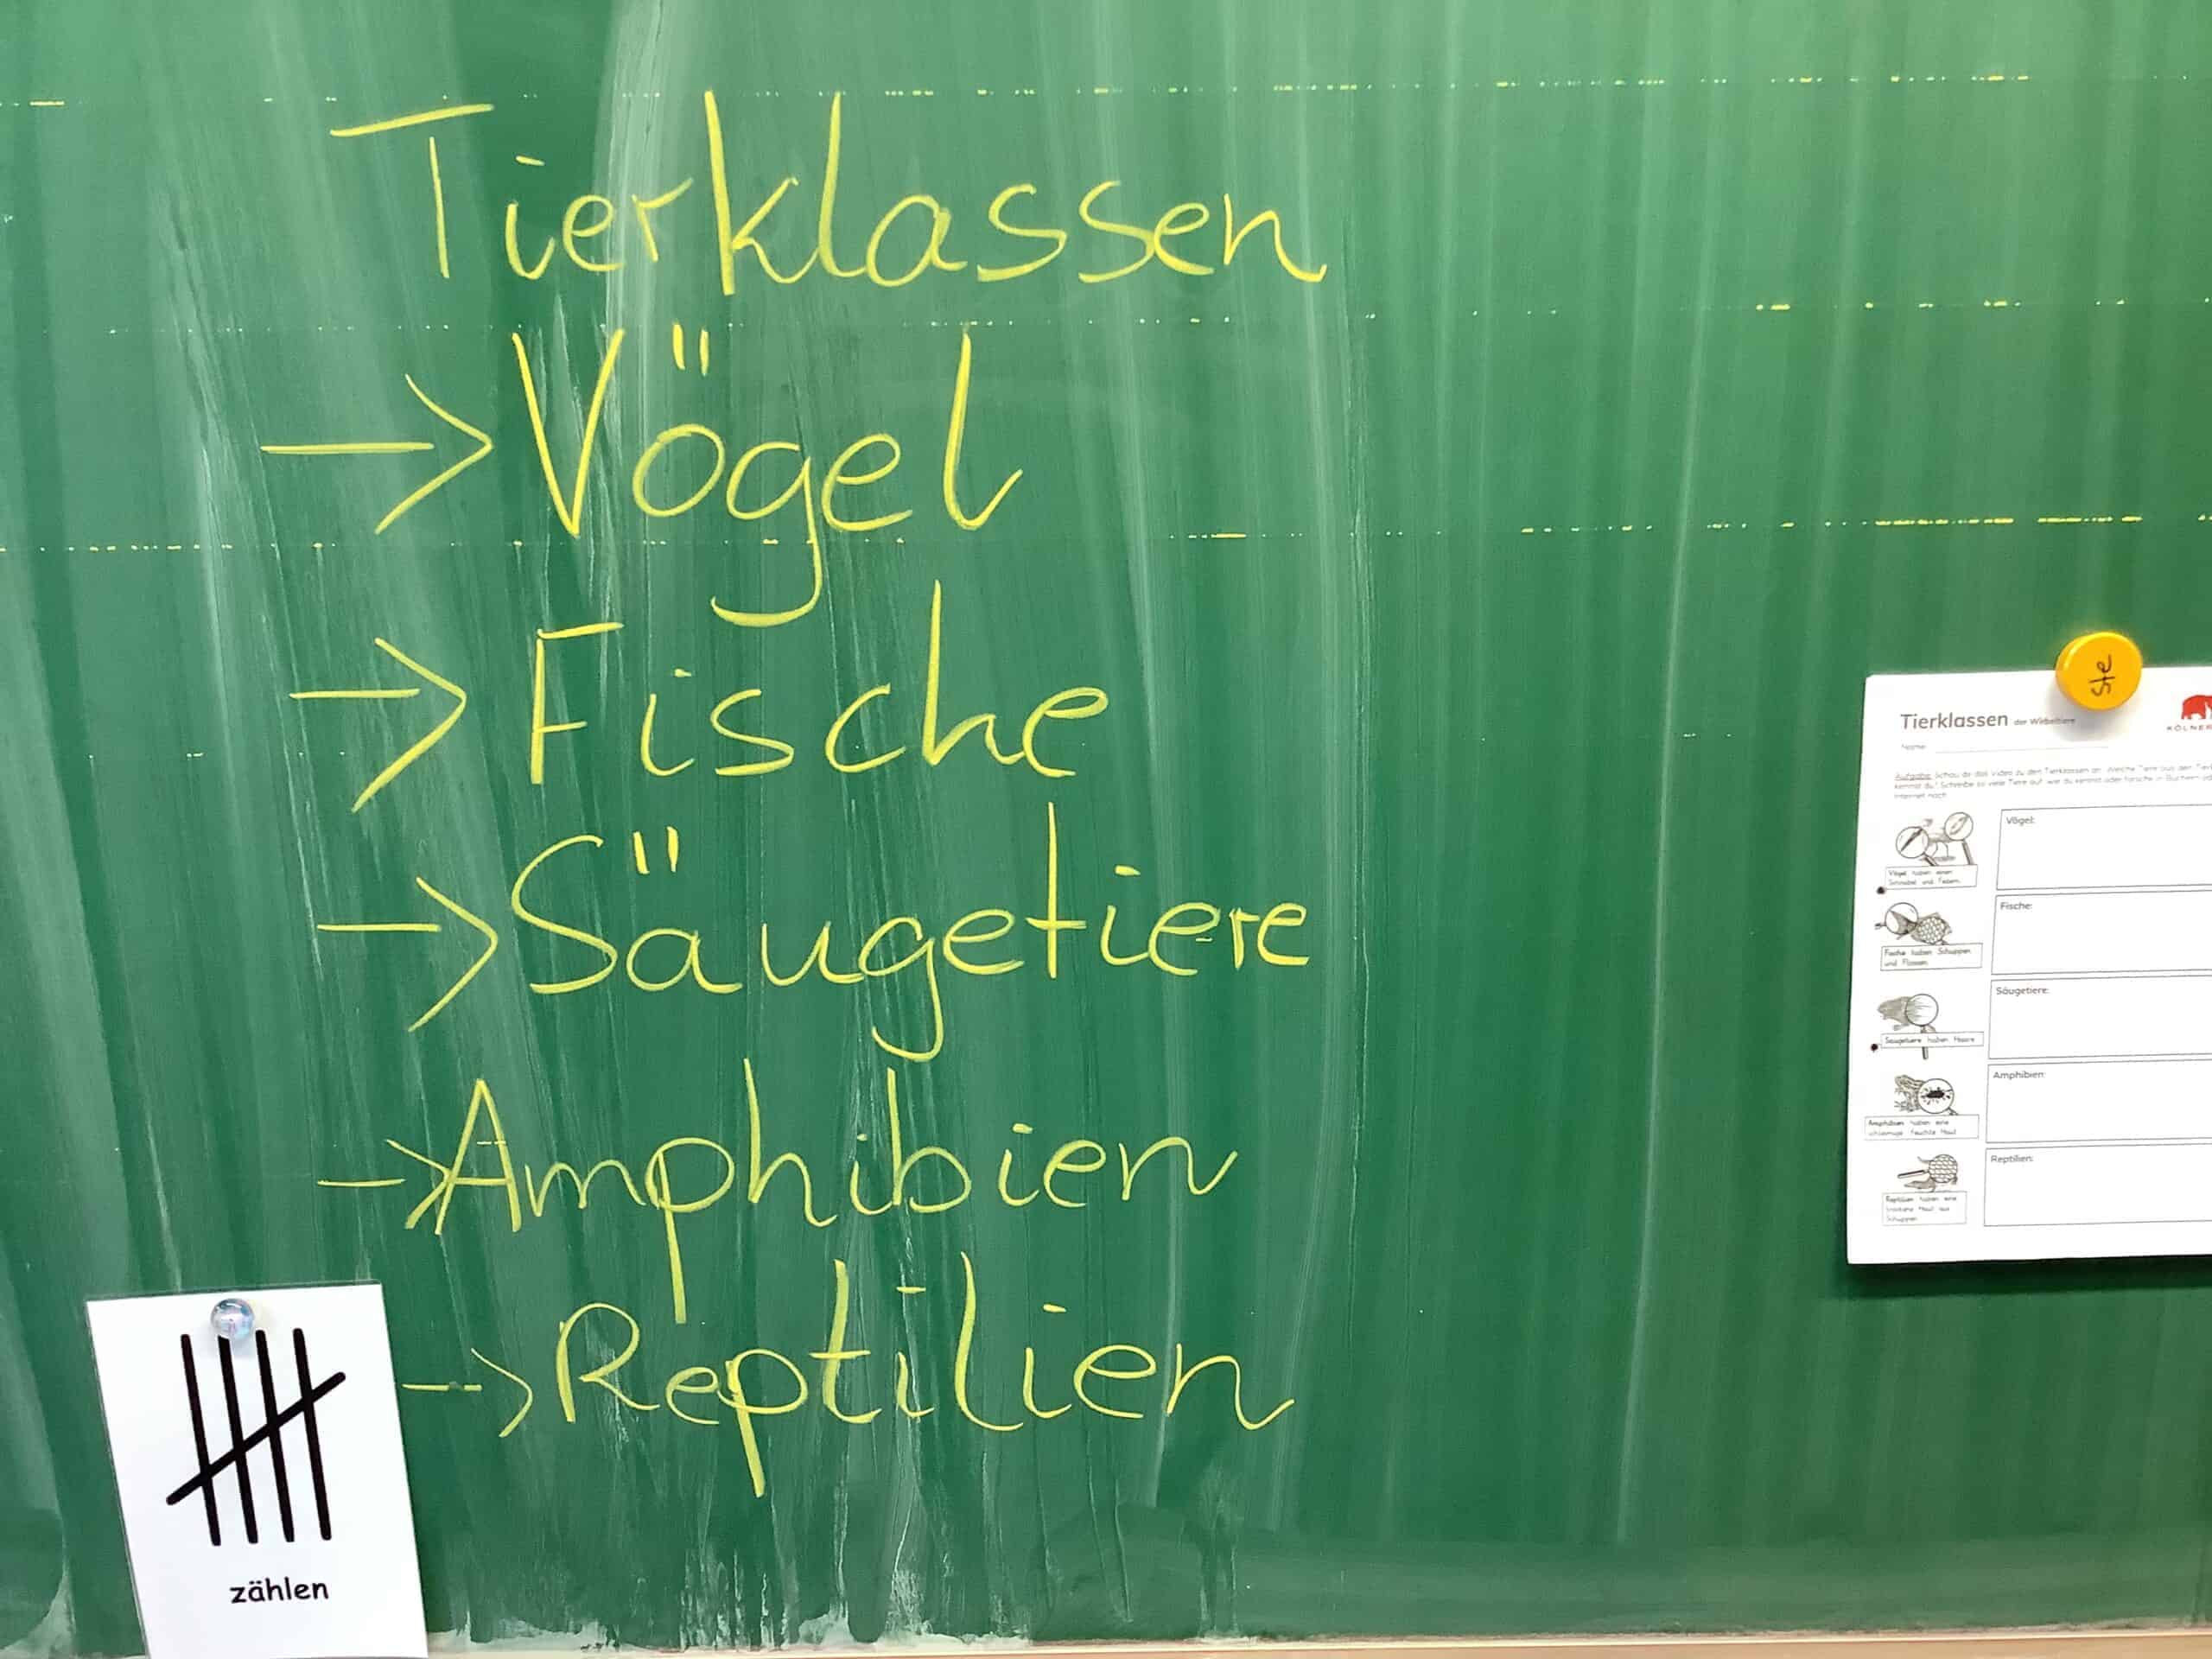 Tierklassen
→ Vögel
→ Fische
→ Säugetiere
→ Amphibien
→ Reptilien
zählen
ste
Tierklassen der Wirbeltiere
KÖLNER
Name:
Aufgabe: Schau dir das Video zu den Tierklassen an. Welche Tiere aus den
kennst du? Schreibe so viele Tiere auf, wie du kennst oder forsche in Büchern
Internet nach.
Vögel haben einen
Schnabel und Federn.
Vögel:
Fische haben Schuppen
und Flossen.
Fische:
Säugetiere haben Haare
Säugetiere:
Amphibien haben eine
schleimige, feuchte Haut
Amphibien:
Reptilien haben eine
trockene Haut aus
Schuppen
Reptilien: